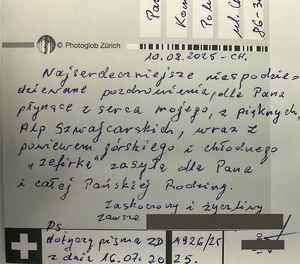 © Photoglob Zürich
10.08.2025 - CH.
Najserdeczniejsze, niespodzie-
dziewane pozdrowienia, dla Pana
płynące z serca mojego, z pięknych,
Alp Szwajcarskich, wraz z
powiewem górskiego i chłodnego
„zefirka” zasyła dla Pana
i całej Pańskiej Rodziny.
Zaskoczony i życzliwy
zawsze
Ps.
dotyczy pisma ZD 4926/25
z dnia 16.07.2025.
Pan
Kom
ul.
86-3